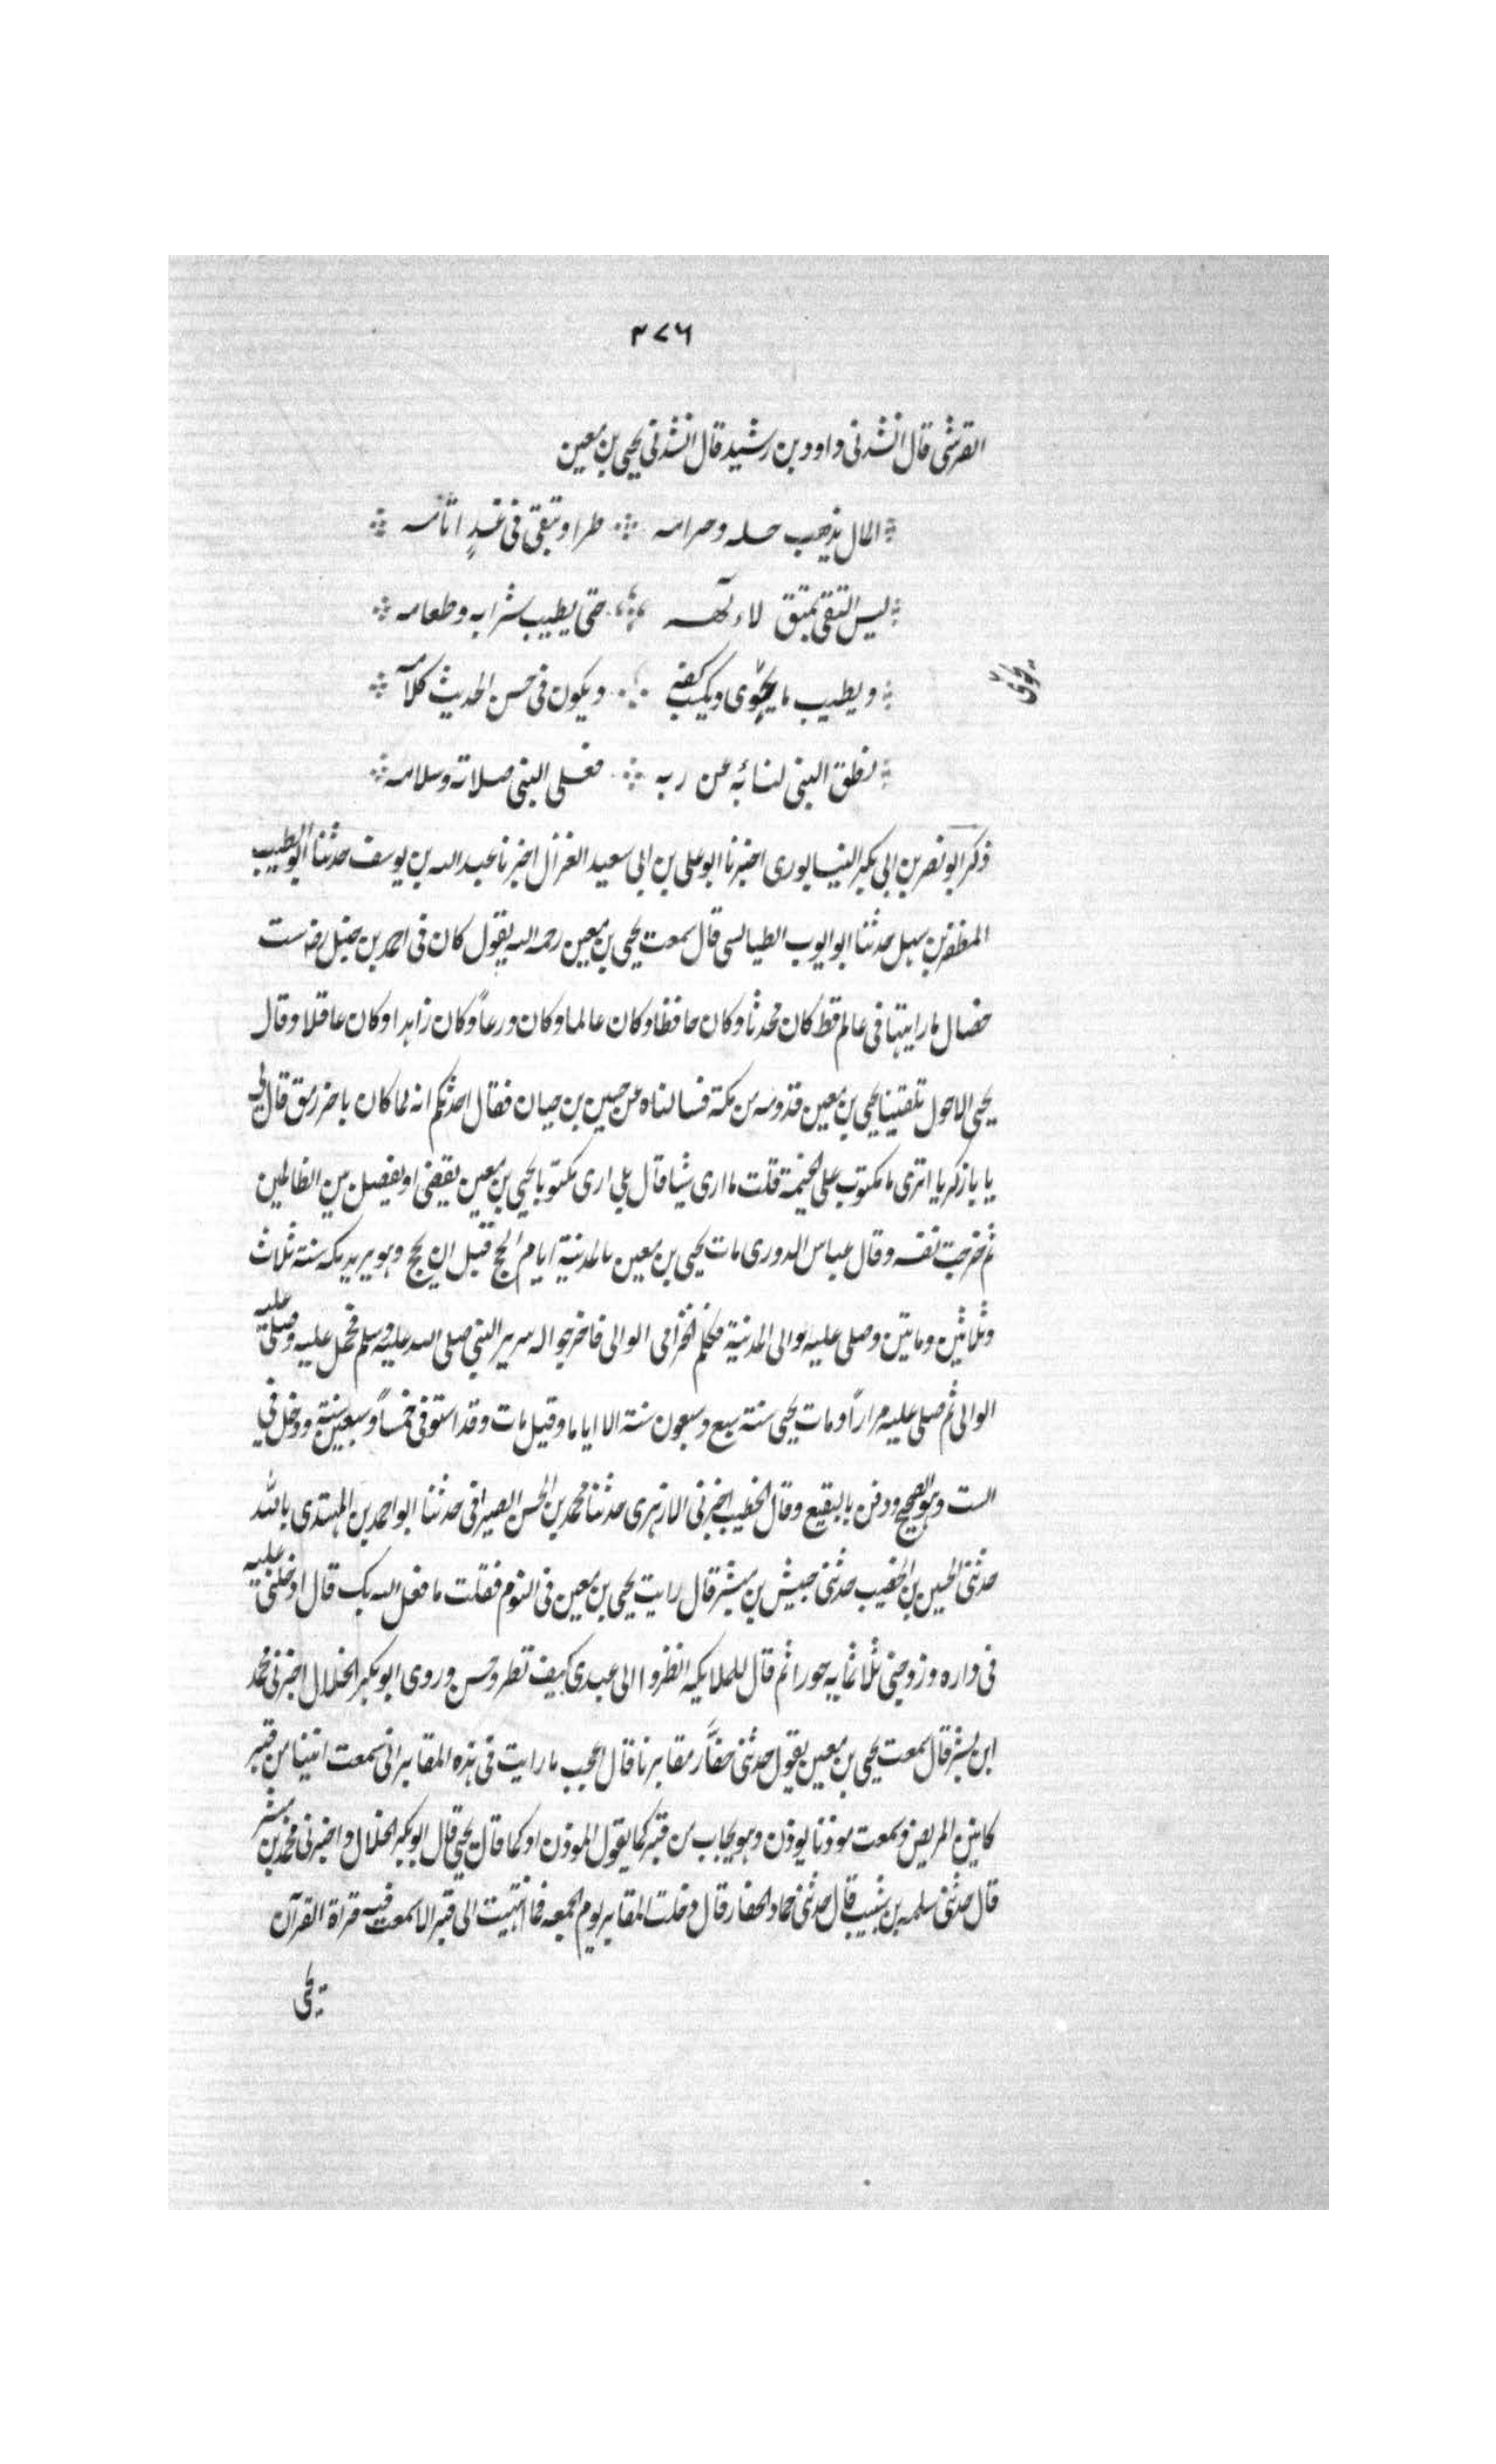 ٣٧٦
القرشى قال انشدنى داود بن رشيد قال انشدنى يحيى بن معين
المال يذهب حله وحرامه طرا وتبقى فى غدٍ اثامه
ليس التقى بمتق لالهه حتى يطيب شرابه وطعامه
ويطيب ما يحوى ويكسب كفه ويكون فى حسن الحديث كلامه
يحوى
نطق النبى لنا به عن ربه فعلى النبى صلاته وسلامه
ذكر ابو نصر بن ابى بكر النيسابورى اخبرنا ابو على بن ابى سعيد الغزال اخبرنا عبد الله بن يوسف حدثنا ابو الطيب
المظفر بن سهل حدثنا ابو ايوب الطيالسى قال سمعت يحيى بن معين رحمه الله يقول كان فى احمد بن حنبل رضه ست
خصال ما رايتها فى عالم قط كان محدثا وكان حافظا وكان عالما وكان ورعاً وكان زاهدا وكان عاقلا وقال
يحيى الاحول تلقينا يحيى بن معين قدومه من مكة فسالناه عن حسين بن حبان فقال احدثكم انه لما كان باخر رمق قال لى
يا با زكريا اترى ما مكتوب على الخيمة قلت ما ارى شيا قال بلى ارى مكتوبا يحيى بن معين يقضى او يفصل بين الظالمين
ثم خرجت نفسه وقال عباس الدورى مات يحيى بن معين بالمدينة ايام الحج قبل ان يحج وهو يريد مكه سنة ثلاث
وثلاثين وماتين وصلى عليه والى المدينة فكلم الخزامى الوالى فاخرجوا له سرير النبى صلى الله عليه وسلم فحمل عليه وصلى عليه
الوالى ثم صلى عليه مراراً ومات يحيى سنة سبع وسبعون سنة الا اياما وقيل مات وقد استوفى خمساً وسبعين سنة ودخل فى
الست وهو الصحيح ودفن بالبقيع وقال الخطيب اخبرنى الازهرى حدثنا محمد بن الحسن الصيرافى حدثنا ابو احمد بن المهتدى بالله
حدثنى الحسين بن الخصيب حدثنى حبيش بن مبشر قال رايت يحيى بن معين فى النوم فقلت ما فعل الله بك قال ادخلنى عليه
فى داره وزوجنى ثلاثمايه حورا ثم قال للملايكه انظروا الى عبدى كيف تطرو حسن وروى ابو بكر الخلال اخبرنى محمد
ابن بشر قال سمعت يحيى بن معين يقول حدثنى حفَّار مقابرنا قال اعجب ما رايت فى هذه المقابر انى سمعت انينا من قبر
كانين المريض وسمعت موذنا يوذن وهو يجاب من قبر كما يقول الموذن او كما قال يحيى قال ابو بكر الخلال واخبرنى محمد بن مبشر
قال حدثنى سلمه بن شبيب قال حدثنى حماد الحفار قال دخلت المقابر يوم الجمعه فما انتهيت الى قبر الا سمعت فيه قراة القرآن
يحيى